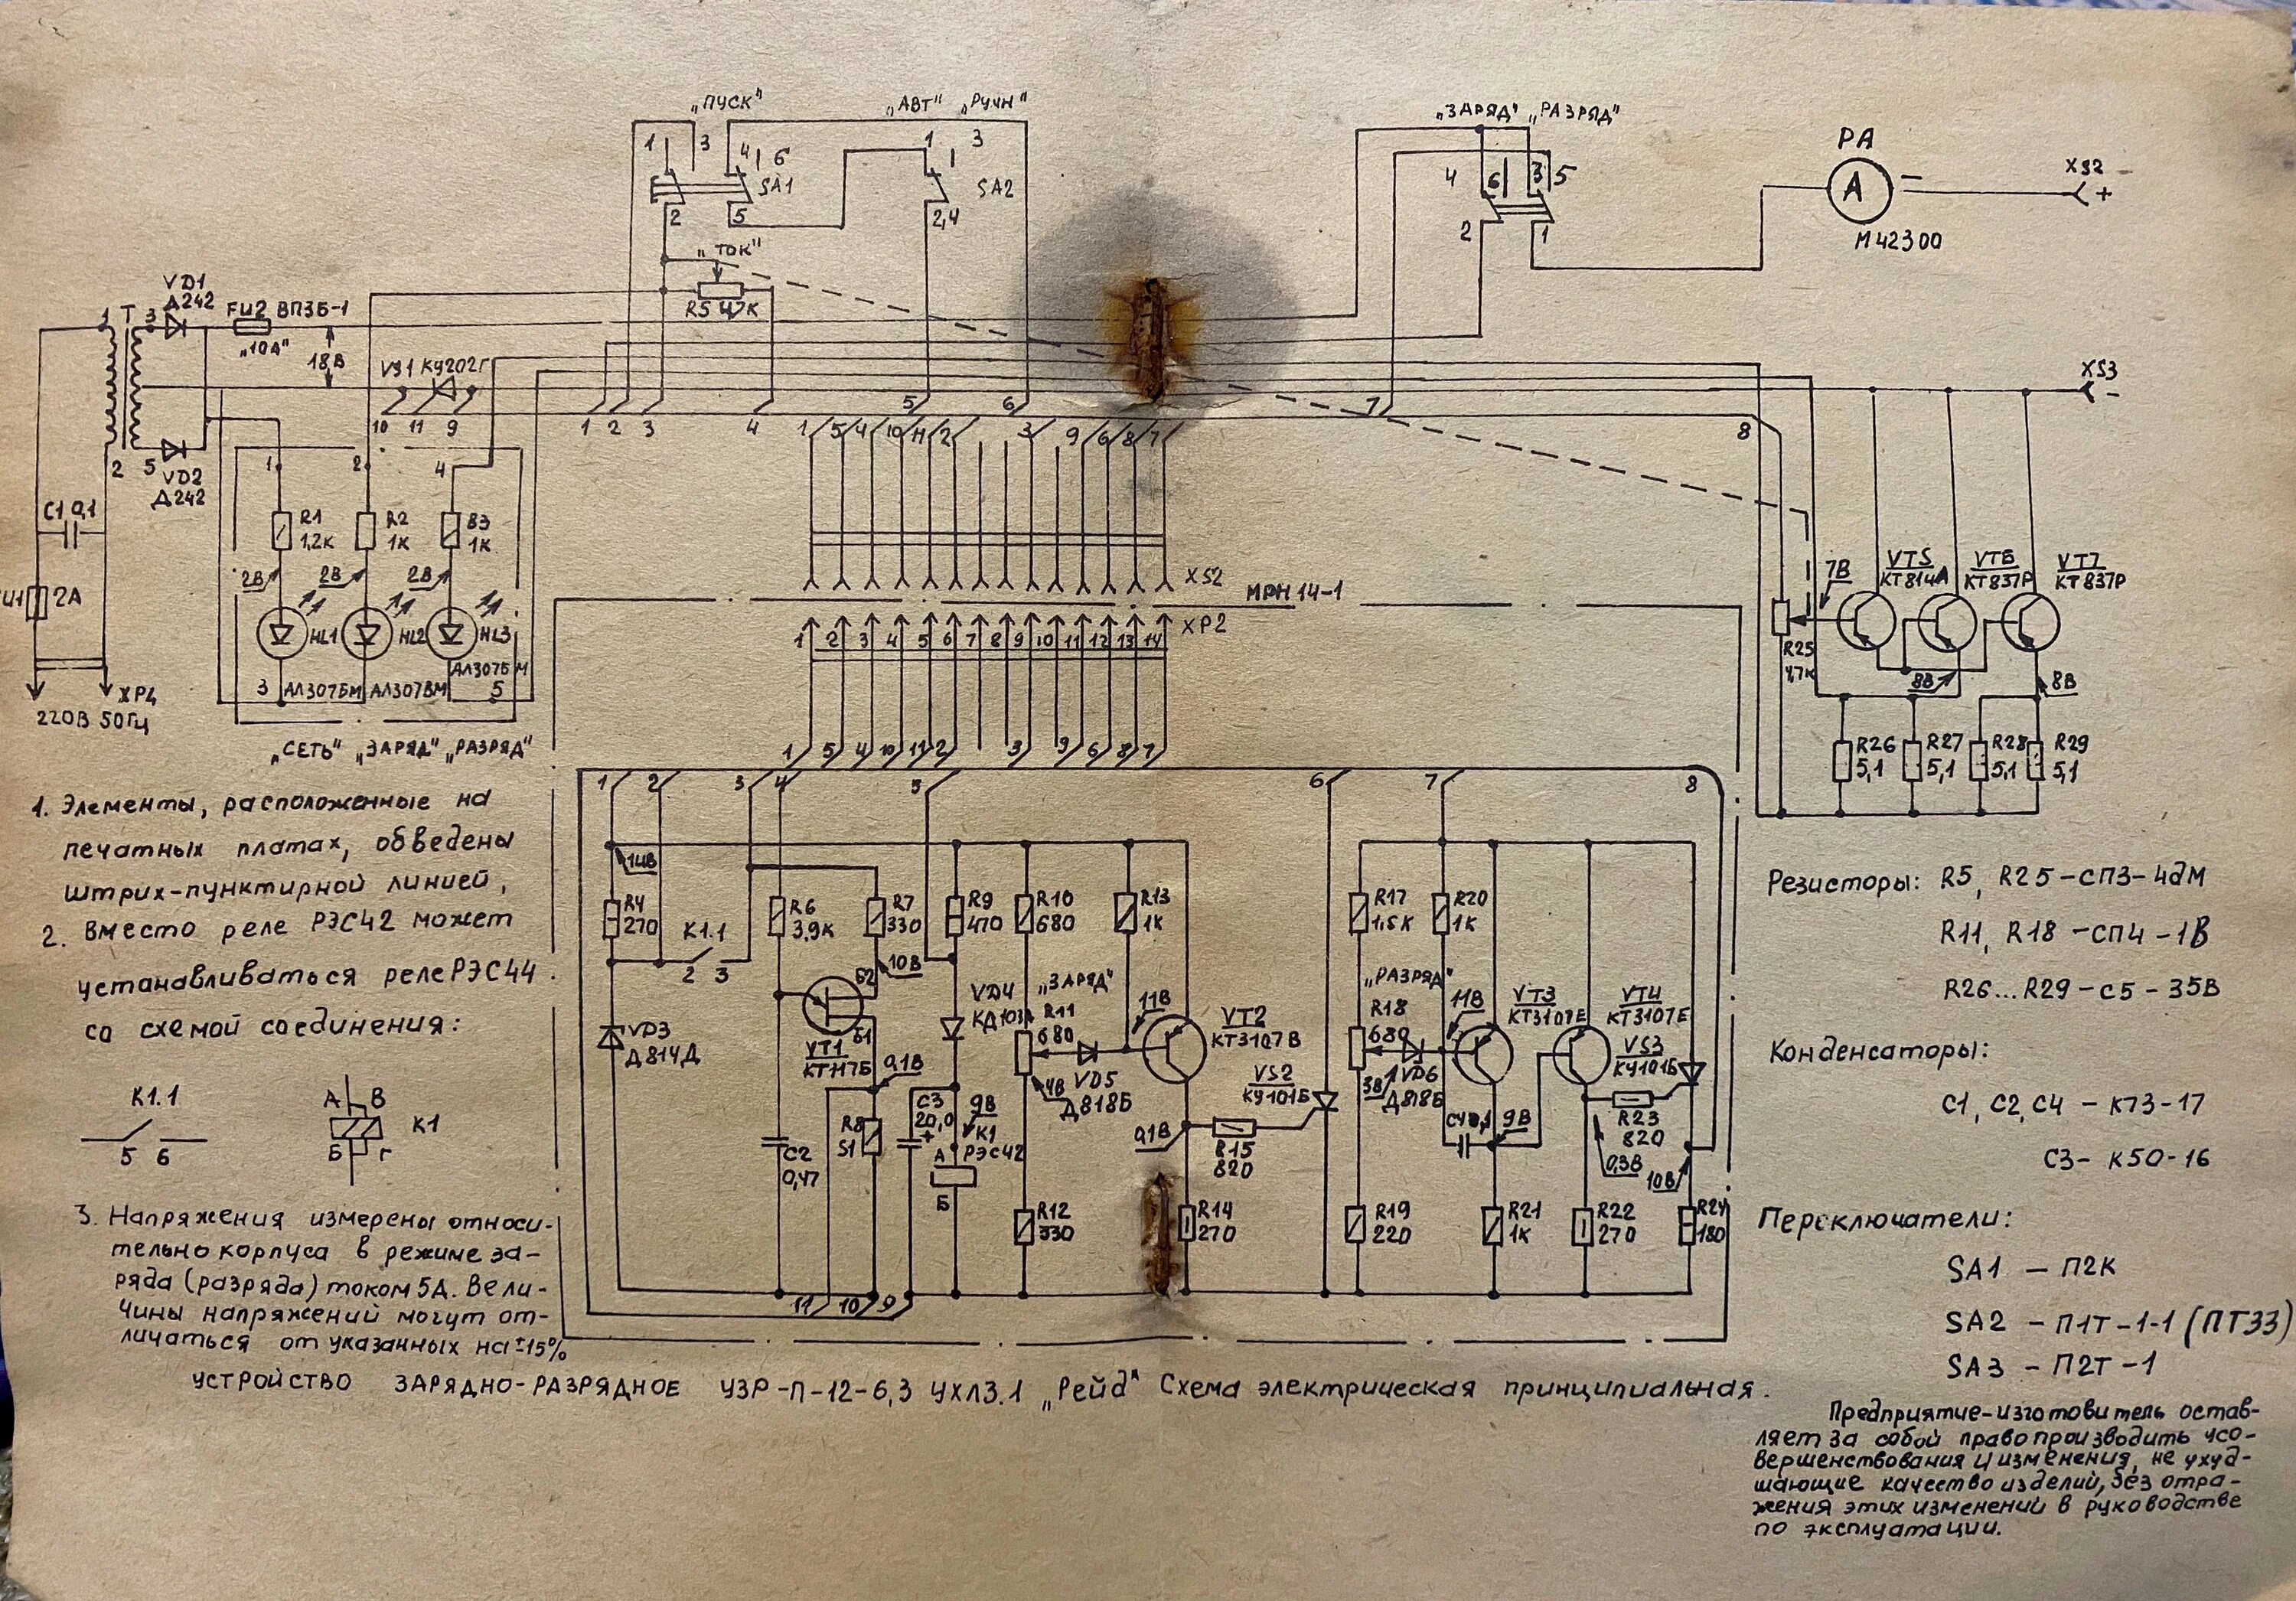 „ПУСК"
„АВТ" „РУЧН"
„ЗАРЯД" „РАЗРЯД"
1 3 4 6
SA1
2 5
1 3
SA2
2,4
4 6 3 5
2 1
РА
А
М42300
XS2
+
„ТОК"
R5 4,7К
VD1
Д242
FU2 ВП3Б-1
„10А"
18В
VS1 КУ202Г
1 Т 3
2 5
VD2
Д242
10 11 9
1 2 3 4 5 6 7 8
XS3
-
1 5 4 10 11 2 3 9 6 8 7
1 2 4
C1 0,1
R1
1,2К
R2
1К
R3
1К
2В 2В 2В
HL1 HL2 HL3
3 АЛ307БМ АЛ307ВМ АЛ307БМ 5
2А
ХР4
220В 50Гц
„СЕТЬ" „ЗАРЯД" „РАЗРЯД"
XS2
МРН 14-1
ХР2
1 2 3 4 5 6 7 8 9 10 11 12 13 14
1 5 4 10 11 2 3 9 6 8 7
7В
VT5
КТ814А
VT6
КТ837Р
VT7
КТ837Р
R25
4,7К
8В
8В
R26
5,1
R27
5,1
R28
5,1
R29
5,1
1. Элементы, расположенные на
печатных платах, обведены
штрих-пунктирной линией,
2. Вместо реле РЭС42 может
устанавливаться реле РЭС44
со схемой соединения:
К1.1
5 6
А В
К1
Б Г
3. Напряжения измерены относи-
тельно корпуса в режиме за-
ряда (разряда) током 5А. Вели-
чины напряжений могут от-
личаться от указанных на ±15%
1 2 3 4 5 6 7 8
14В
R4
270
К1.1
2 3
R6
3,9К
R7
330
10В
R9
470
R10
680
R13
1К
VD3
Д814Д
Б2
Б1
VT1
КТ117Б
0,1В
VD4
КД103А
„ЗАРЯД"
R11
680
11В
VT2
КТ3107В
4В
VD5
Д818Б
C2
0,47
R8
51
C3
20,0
+
9В
К1
РЭС42
А
Б
R12
330
0,1В
R15
820
R14
270
VS2
КУ101Б
R17
1,5К
R20
1К
„РАЗРЯД"
R18
680
11В
VT3
КТ3107Е
VT4
КТ3107Е
VS3
КУ101Б
3В
VD6
Д818Б
C4 0,1
9В
R23
820
0,3В
10В
R19
220
R21
1К
R22
270
R24
180
11 10 9
Резисторы: R5, R25-СП3-4дМ
R11, R18 -СП4-1В
R26...R29-С5-35В
Конденсаторы:
C1, C2, C4 - К73-17
C3- К50-16
Переключатели:
SA1 - П2К
SA2 - П1Т-1-1 (ПТ33)
SA3 - П2Т-1
УСТРОЙСТВО ЗАРЯДНО-РАЗРЯДНОЕ УЗР-П-12-6,3 УХЛ3.1 „Рейд" Схема электрическая принципиальная.
Предприятие-изготовитель остав-
ляет за собой право производить усо-
вершенствования и изменения, не ухуд-
шающие качество изделий, без отра-
жения этих изменений в руководстве
по эксплуатации.